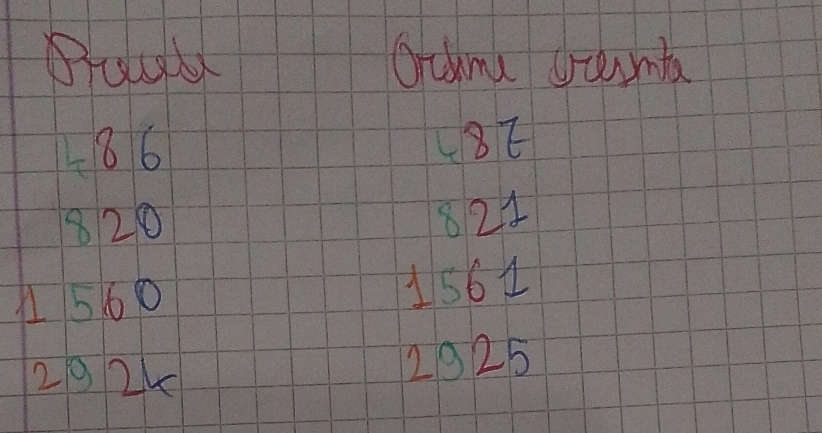 Ordine
486 487
820 821
1560 1561
2924 2925